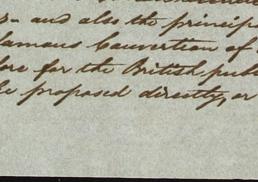 and also the principa
famous Convention of
for the British publ
be proposed directly, or